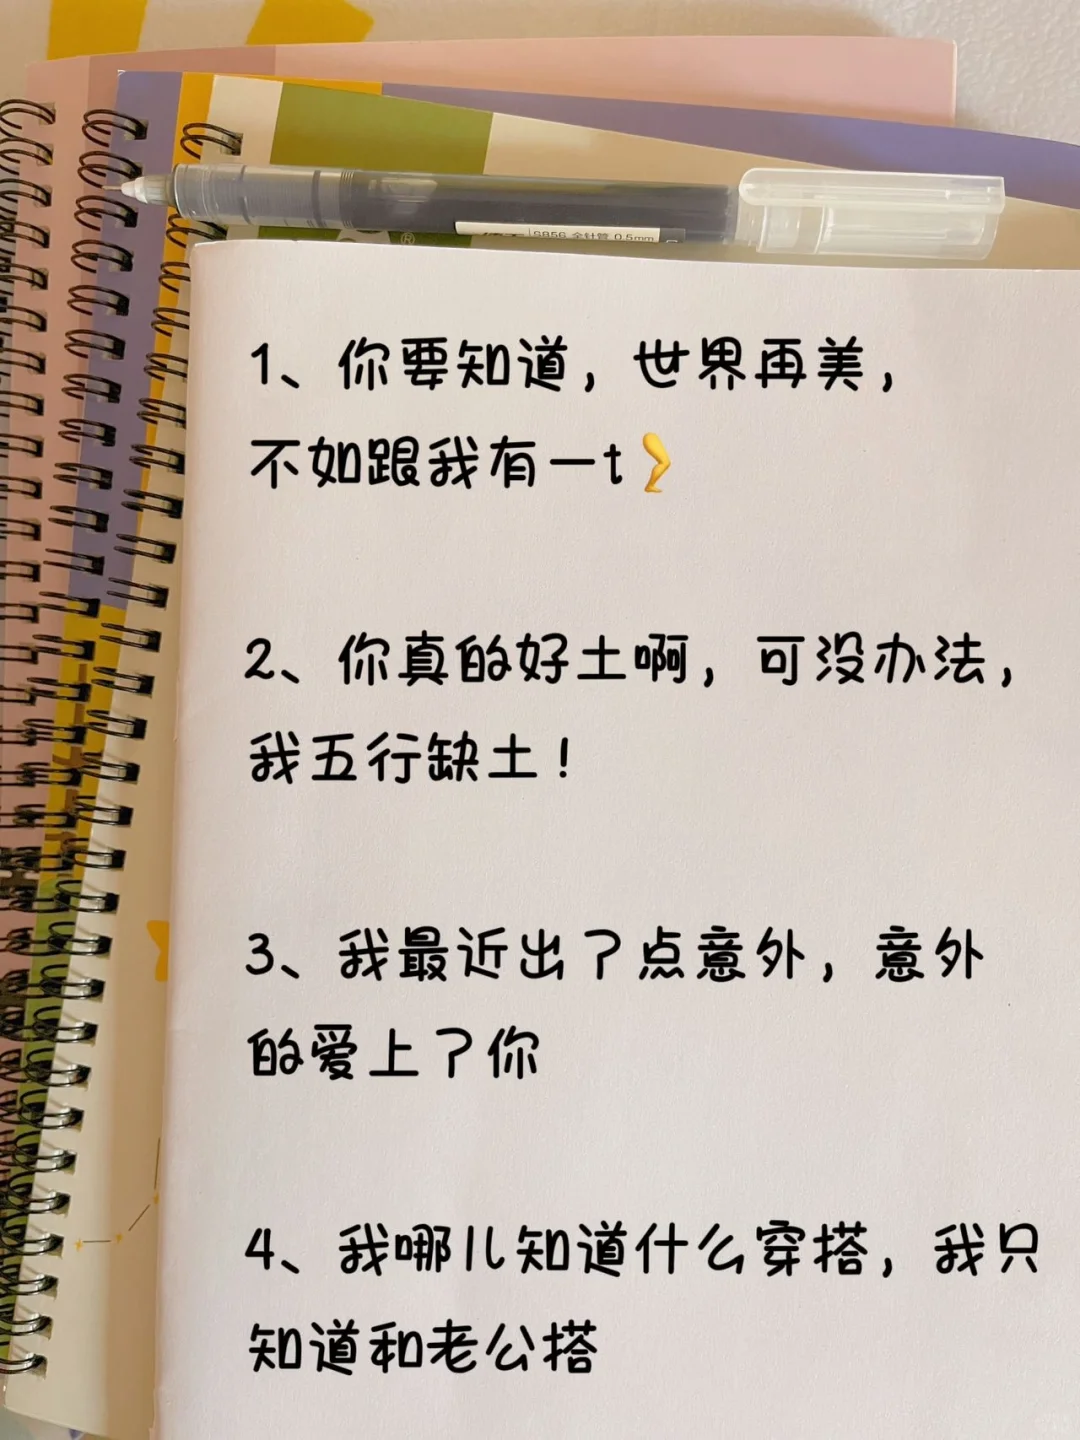 ®
S856 全针管 0.5mm
1、你要知道，世界再美，
不如跟我有一t🦵
2、你真的好土啊，可没办法，
我五行缺土！
3、我最近出了点意外，意外
的爱上了你
4、我哪儿知道什么穿搭，我只
知道和老公搭